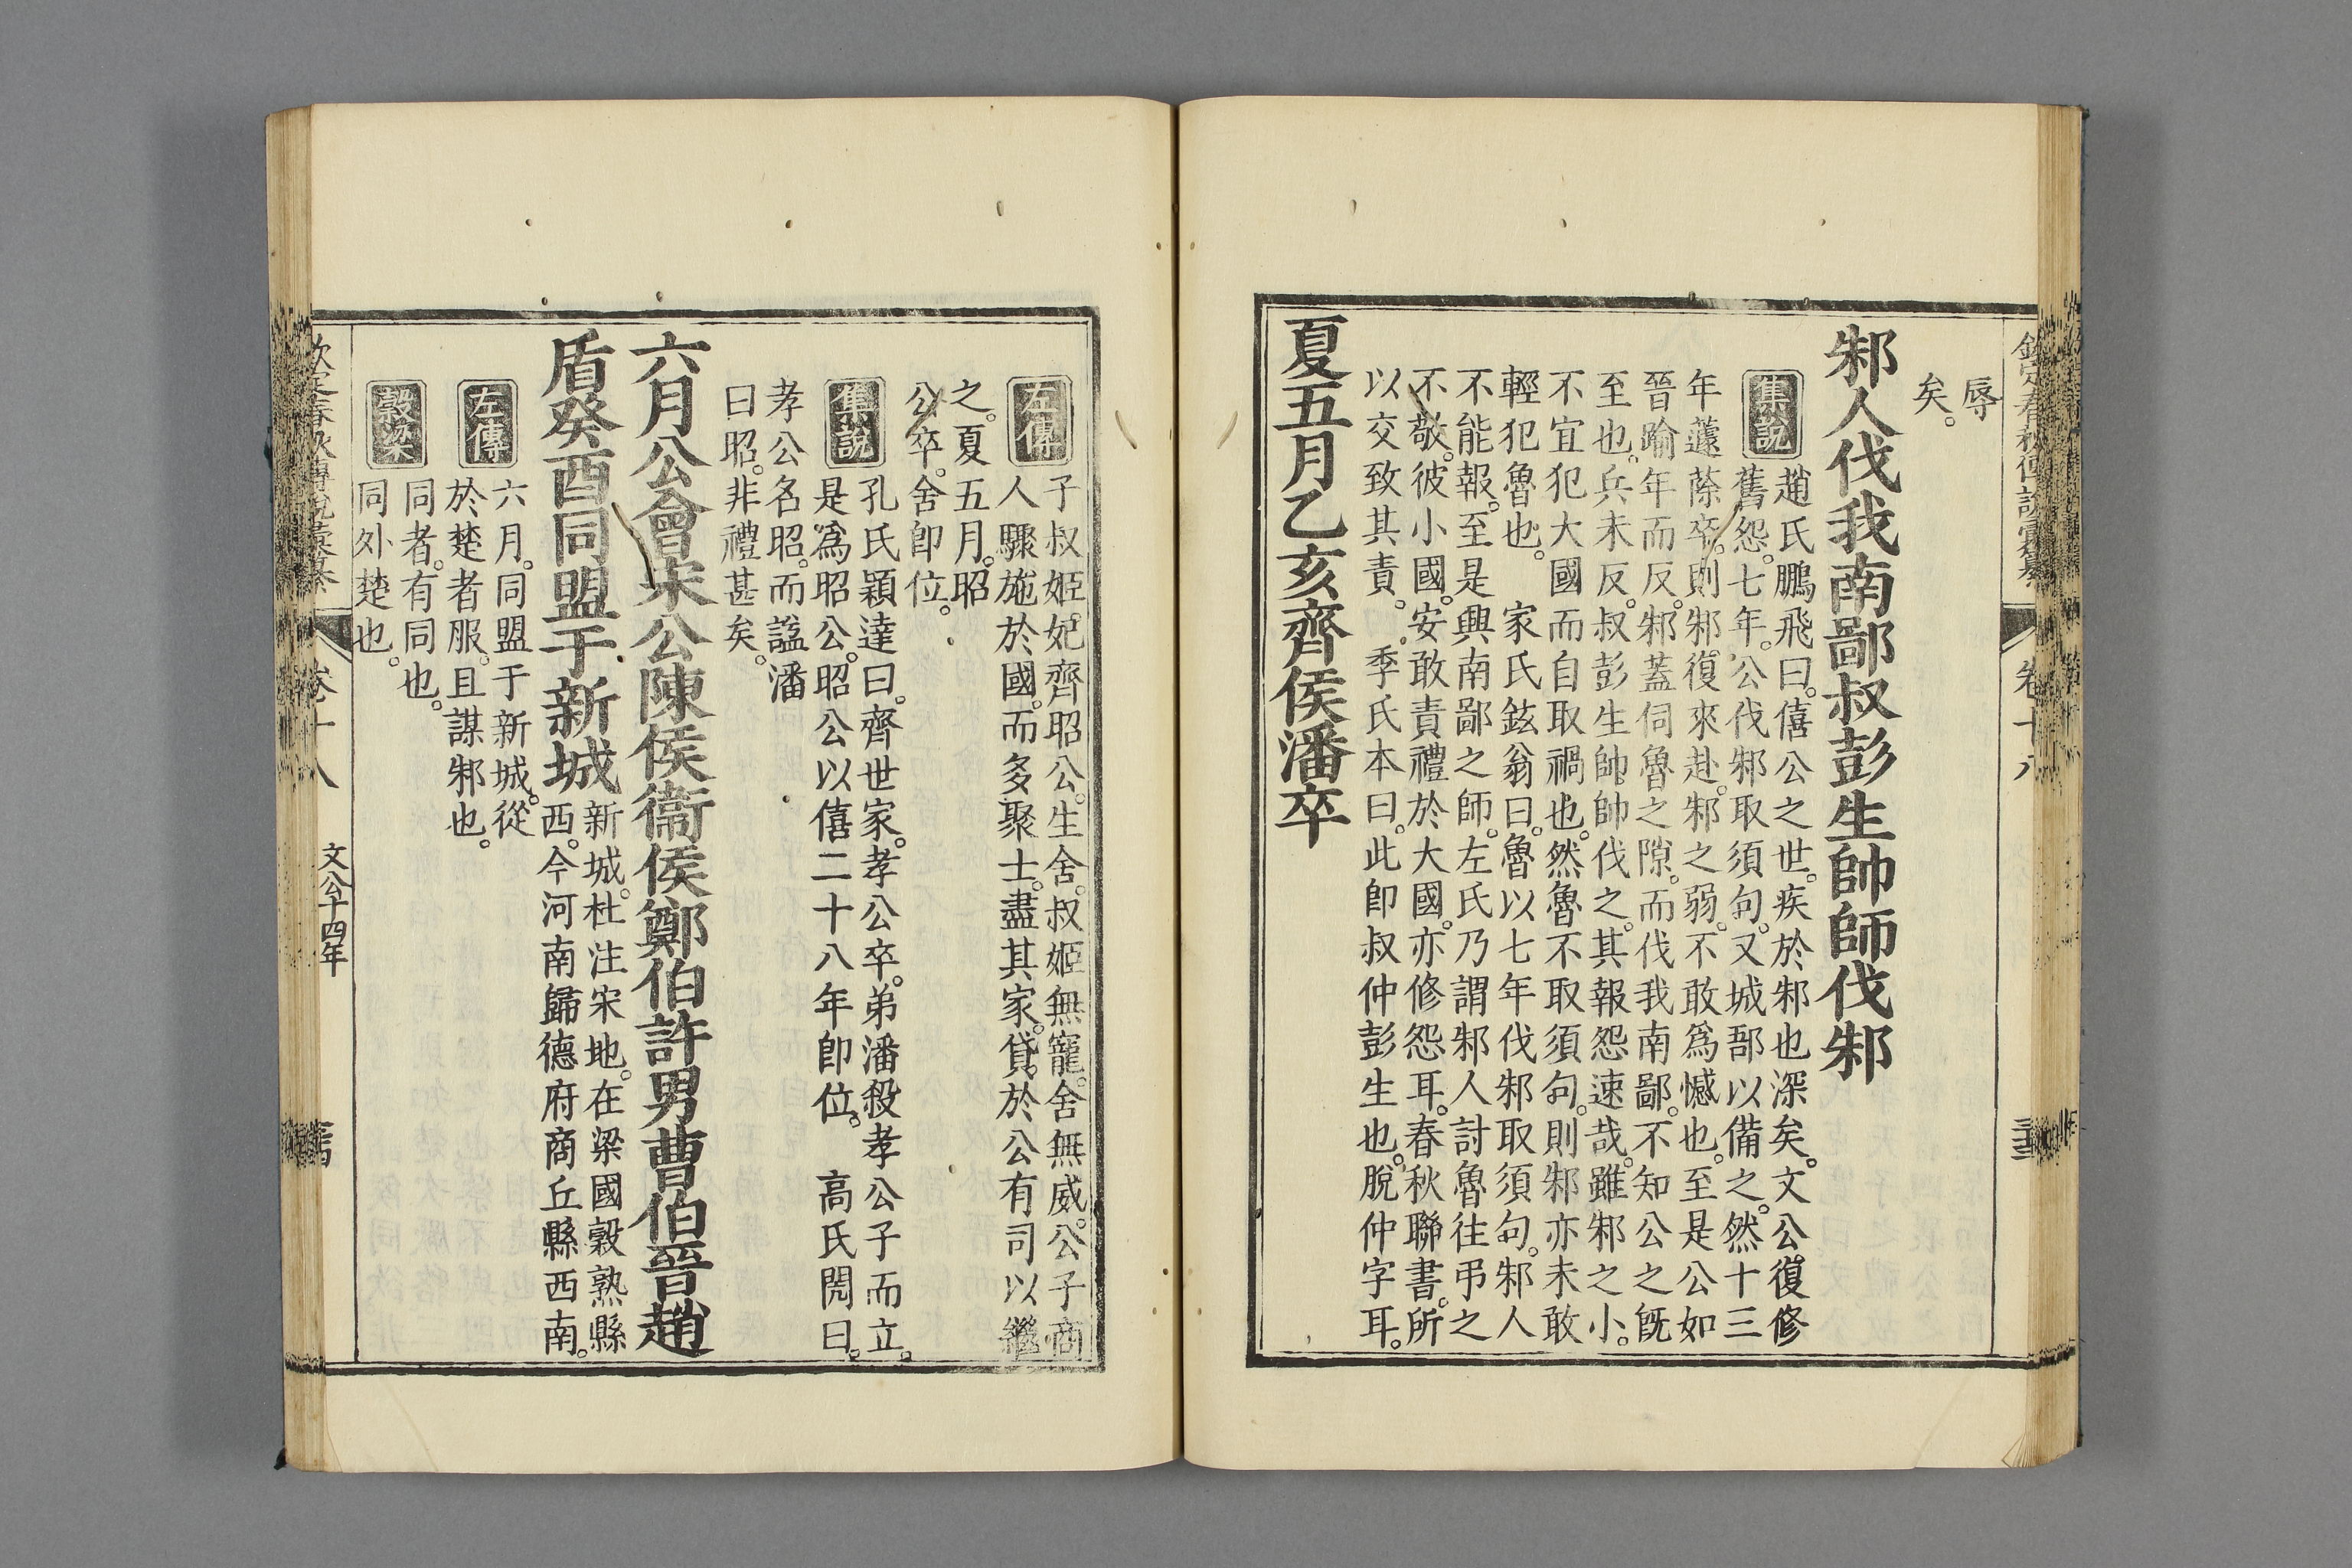 欽定春秋傳說彙纂 卷十八
辱
矣。
邾人伐我南鄙叔彭生帥師伐邾
集說
趙氏鵬飛曰。僖公之世。疾於邾也深矣。文公復修
舊怨。七年。公伐邾取須句。又城郚以備之。然十三
年蘧蒢卒。則邾復來赴。邾之弱。不敢爲憾也。至是公如
晉踰年而反。邾蓋伺魯之隙。而伐我南鄙。不知公之旣
至也。兵未反。叔彭生帥師伐之。其報怨速哉。雖邾之小。
不宜犯大國而自取禍也。然魯不取須句。則邾亦未敢
輕犯魯也。 家氏鉉翁曰。魯以七年伐邾取須句。邾人
不能報。至是興南鄙之師。左氏乃謂邾人討魯往弔之
不敬。彼小國。安敢責禮於大國。亦修怨耳。春秋聯書。所
以交致其責。 季氏本曰。此卽叔仲彭生也。脫仲字耳。
夏五月乙亥齊侯潘卒
左傳
子叔姬。妃齊昭公。生舍。叔姬無寵。舍無威。公子商
人驟施於國。而多聚士。盡其家。貸。於公有司以繼
之。夏五月。昭
公卒。舍卽位。
集說
孔氏穎達曰。齊世家。孝公卒。弟潘殺孝公子而立。
是爲昭公。昭公以僖二十八年卽位。 高氏閌曰。
孝公名昭。而諡潘
曰昭。非禮甚矣。
六月公會宋公陳侯衞侯鄭伯許男曹伯晉趙
盾癸酉同盟于新城
新城。杜注宋地。在梁國穀熟縣
西。今河南歸德府商丘縣西南。
左傳
六月。同盟于新城。從
於楚者服。且謀邾也。
穀梁
同者。有同也。
同外楚也。
欽定春秋傳說彙纂 卷十八 文公十四年